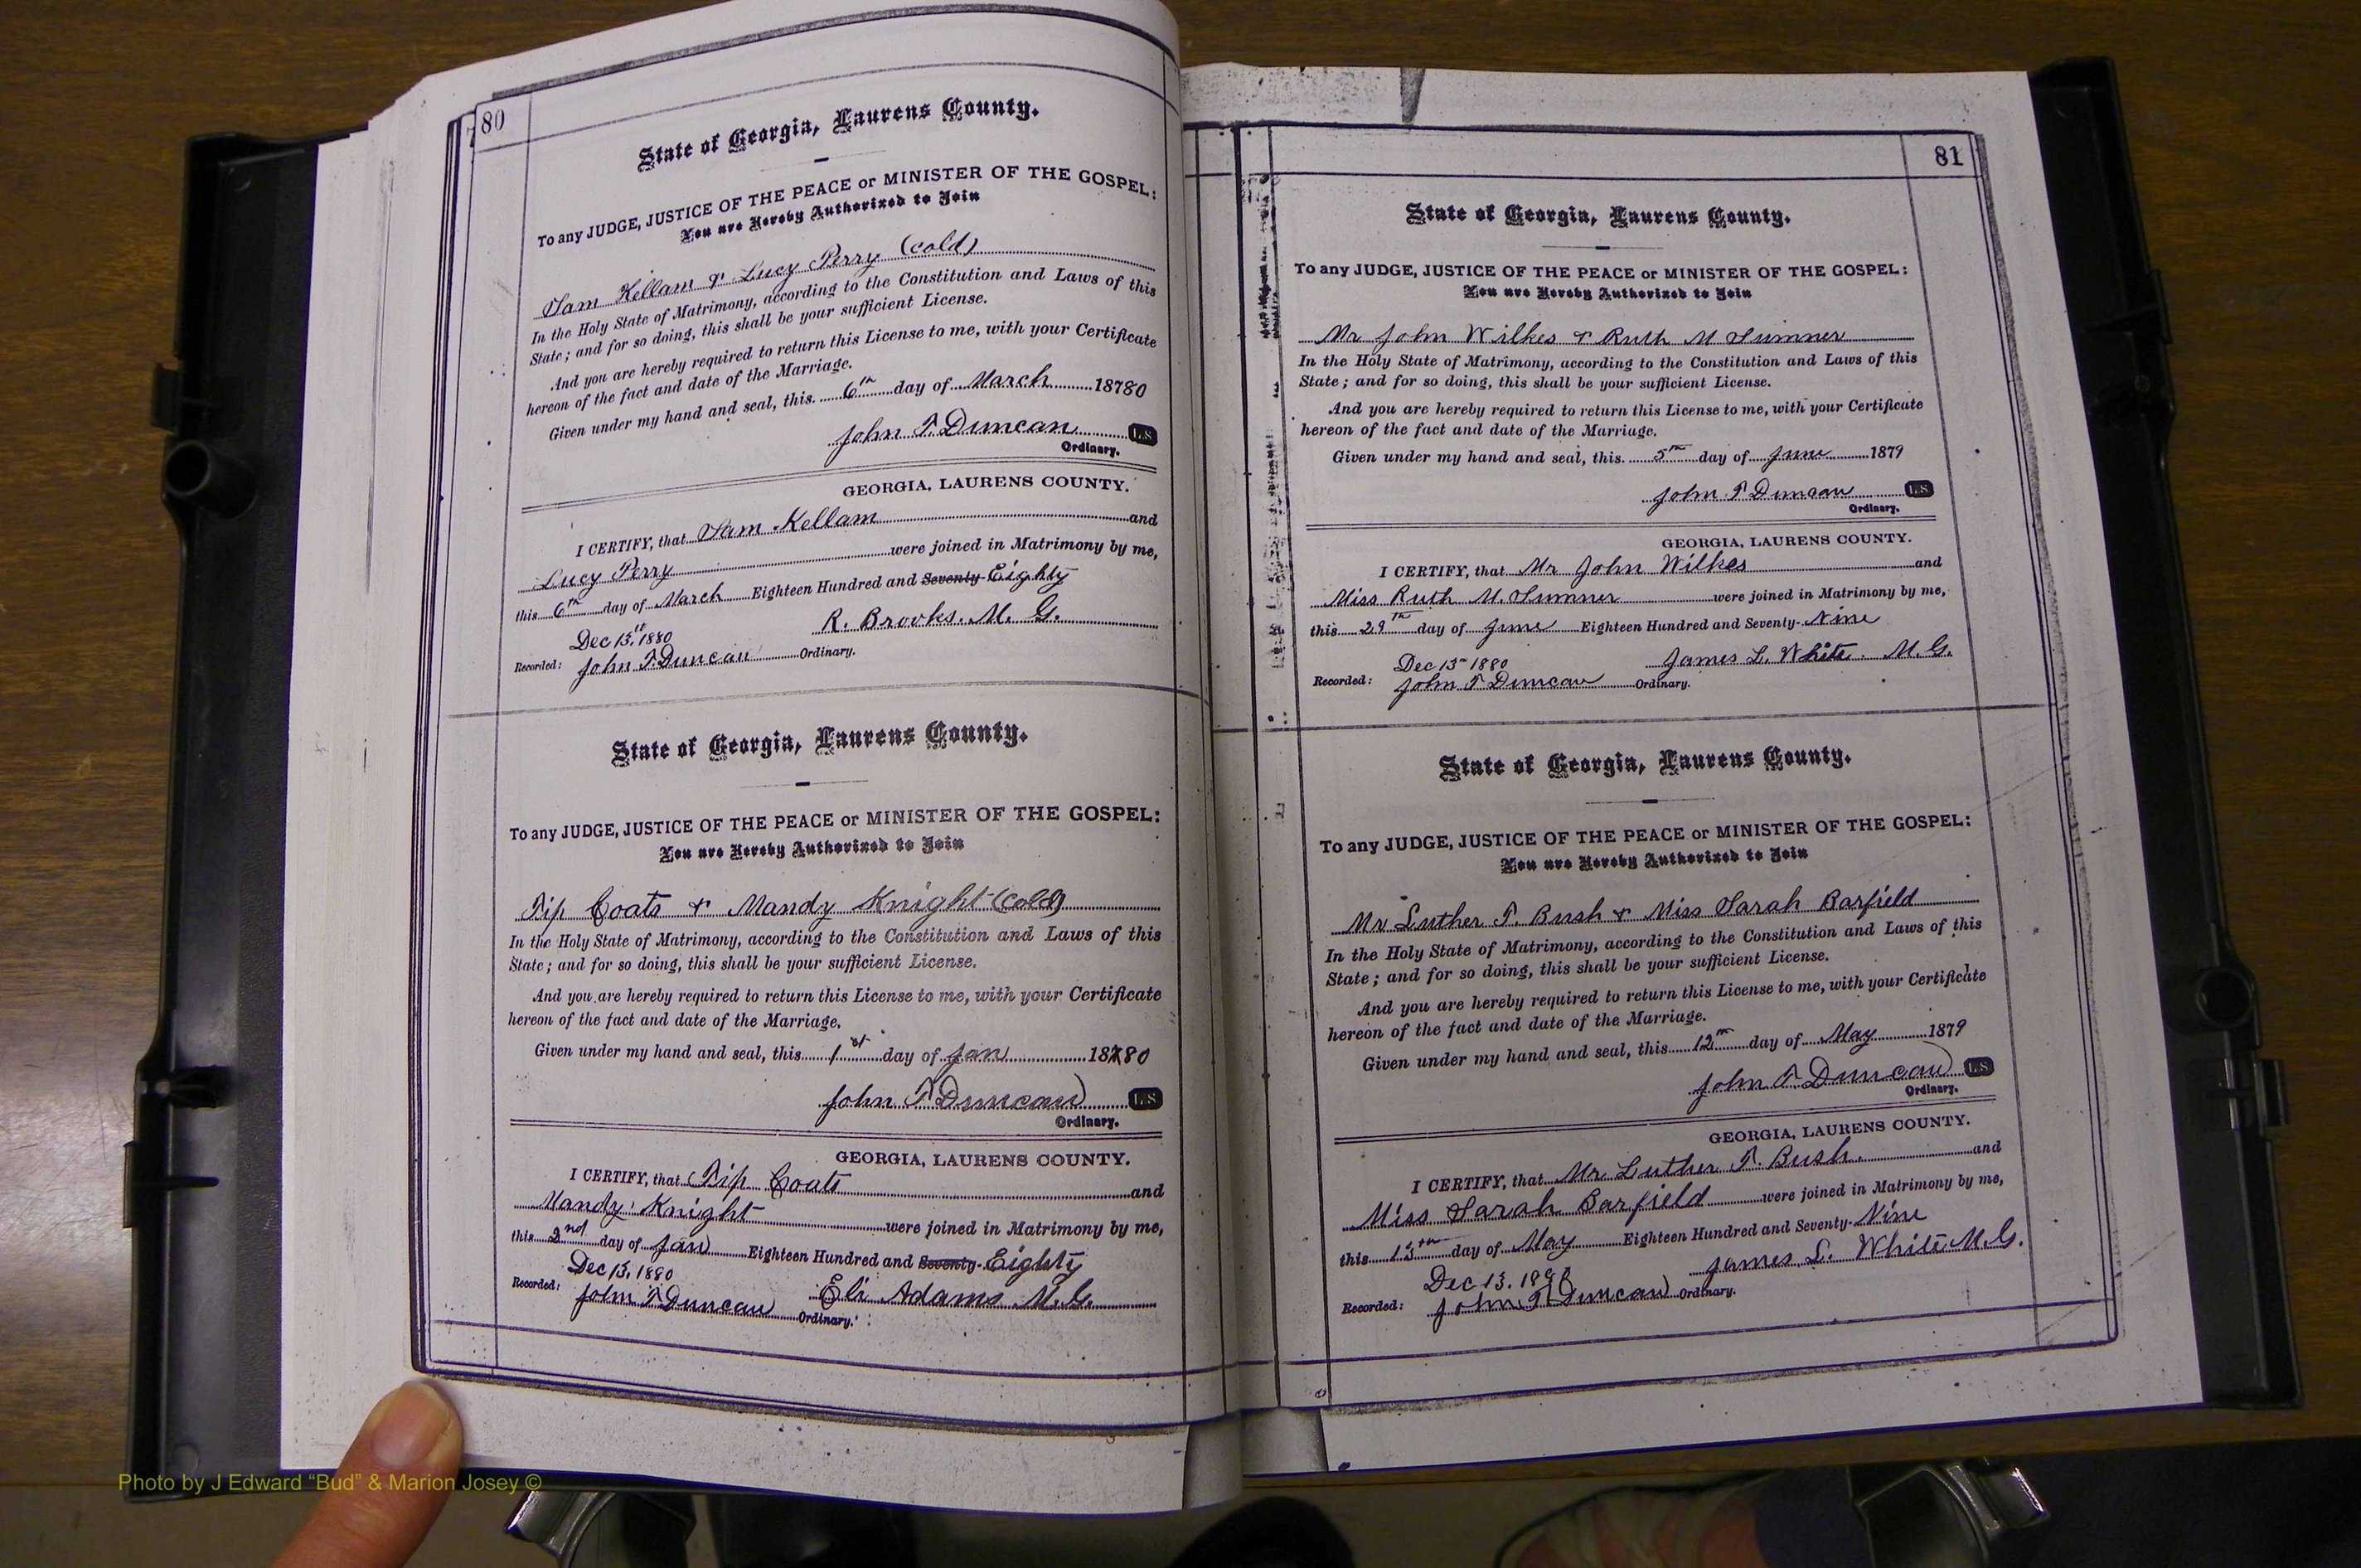 80
State of Georgia, Laurens County.
To any JUDGE, JUSTICE OF THE PEACE or MINISTER OF THE GOSPEL:
You are Hereby Authorized to Join
Sam Kellam & Lucy Perry (cold)
In the Holy State of Matrimony, according to the Constitution and Laws of this
State; and for so doing, this shall be your sufficient License.
And you are hereby required to return this License to me, with your Certificate
hereon of the fact and date of the Marriage.
Given under my hand and seal, this 6th day of March 18780
John T. Duncan L S
Ordinary.
GEORGIA, LAURENS COUNTY.
I CERTIFY, that Sam Kellam and
Lucy Perry were joined in Matrimony by me,
this 6th day of March Eighteen Hundred and Seventy- Eighty
R. Brooks. M. G.
Dec 13th 1880
Recorded: John T. Duncan Ordinary.
State of Georgia, Laurens County.
To any JUDGE, JUSTICE OF THE PEACE or MINISTER OF THE GOSPEL:
You are Hereby Authorized to Join
Tip Coats & Mandy Knight (Cold)
In the Holy State of Matrimony, according to the Constitution and Laws of this
State; and for so doing, this shall be your sufficient License.
And you are hereby required to return this License to me, with your Certificate
hereon of the fact and date of the Marriage.
Given under my hand and seal, this 1st day of Jan 18780
John T Duncan L S
Ordinary.
GEORGIA, LAURENS COUNTY.
I CERTIFY, that Tip Coats and
Mandy Knight were joined in Matrimony by me,
this 2nd day of Jan Eighteen Hundred and Seventy- Eighty
Dec 13, 1880 Eli Adams M.G.
Recorded: John T Duncan Ordinary.
81
State of Georgia, Laurens County.
To any JUDGE, JUSTICE OF THE PEACE or MINISTER OF THE GOSPEL:
You are Hereby Authorized to Join
Mr John Wilkes & Ruth M Sumner
In the Holy State of Matrimony, according to the Constitution and Laws of this
State; and for so doing, this shall be your sufficient License.
And you are hereby required to return this License to me, with your Certificate
hereon of the fact and date of the Marriage.
Given under my hand and seal, this 5th day of June 1879
John T Duncan L S
Ordinary.
GEORGIA, LAURENS COUNTY.
I CERTIFY, that Mr John Wilkes and
Miss Ruth M. Sumner were joined in Matrimony by me,
this 29th day of June Eighteen Hundred and Seventy- Nine
Dec 13th 1880 James L. White. M.G.
Recorded: John T Duncan Ordinary.
State of Georgia, Laurens County.
To any JUDGE, JUSTICE OF THE PEACE or MINISTER OF THE GOSPEL:
You are Hereby Authorized to Join
Mr Luther T. Bush & Miss Sarah Barfield
In the Holy State of Matrimony, according to the Constitution and Laws of this
State; and for so doing, this shall be your sufficient License.
And you are hereby required to return this License to me, with your Certificate
hereon of the fact and date of the Marriage.
Given under my hand and seal, this 12th day of May 1879
John T Duncan L S
Ordinary.
GEORGIA, LAURENS COUNTY.
I CERTIFY, that Mr. Luther T. Bush. and
Miss Sarah Barfield were joined in Matrimony by me,
this 15th day of May Eighteen Hundred and Seventy- Nine
Dec 13. 1880 James L. White M.G.
Recorded: John T Duncan Ordinary.
Photo by J Edward “Bud” & Marion Josey ©